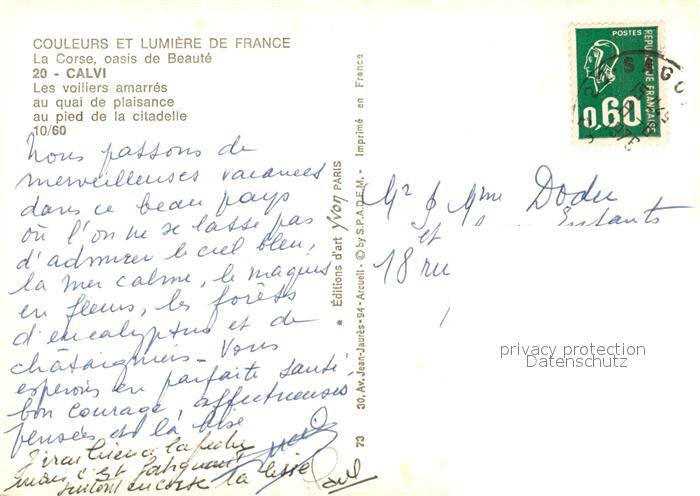 COULEURS ET LUMIÈRE DE FRANCE
La Corse, oasis de Beauté
20 - CALVI
Les voiliers amarrés
au quai de plaisance
au pied de la citadelle
10/60
Nous passons de
merveilleuses vacances
dans ce beau pays
où l'on ne se lasse pas
d'admirer le ciel bleu,
la mer calme, le maquis
en fleurs, les forêts
d'eucalyptus et de
châtaigniers - Vous
espérons en parfaite santé,
bon courage, affectueuses
pensées et la bise
J'irai bien à la pêche
mais c'est fatiguant
surtout en corse la bise
Paul
* Éditions d'art yvon PARIS
30, Av. Jean-Jaurès - 94 - Arcueil - © by S.P.A.D.E.M. - Imprimé en France
73
POSTES
RÉPUBLIQUE FRANÇAISE
0,60
SAGO
Mr & Mme Dodu
et Enfants
18 ru
privacy protection
Datenschutz